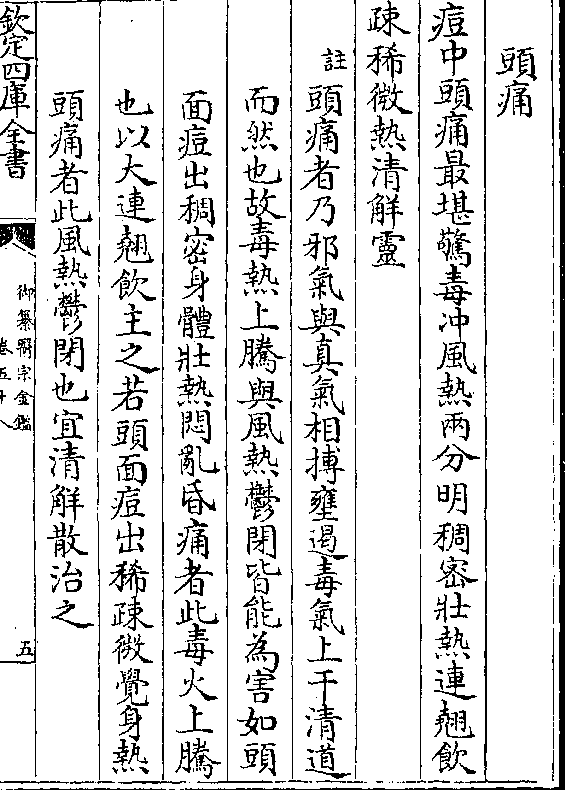 頭痛
痘中頭痛最堪驚毒冲風熱兩分明稠密壯熱連翹飲
疎稀微熱清解靈
註頭痛者乃邪氣與真氣相搏壅遏毒氣上干清道
而然也故毒熱上騰與風熱鬱閉皆能為害如頭
面痘出稠密身體壯熱悶亂昏痛者此毒火上騰
也以大連翹飲主之若頭面痘出稀疎微覺身熱
頭痛者此風熱鬱閉也宜清解散治之
欽定四庫全書
御纂醫宗金鑑
卷五十八
五